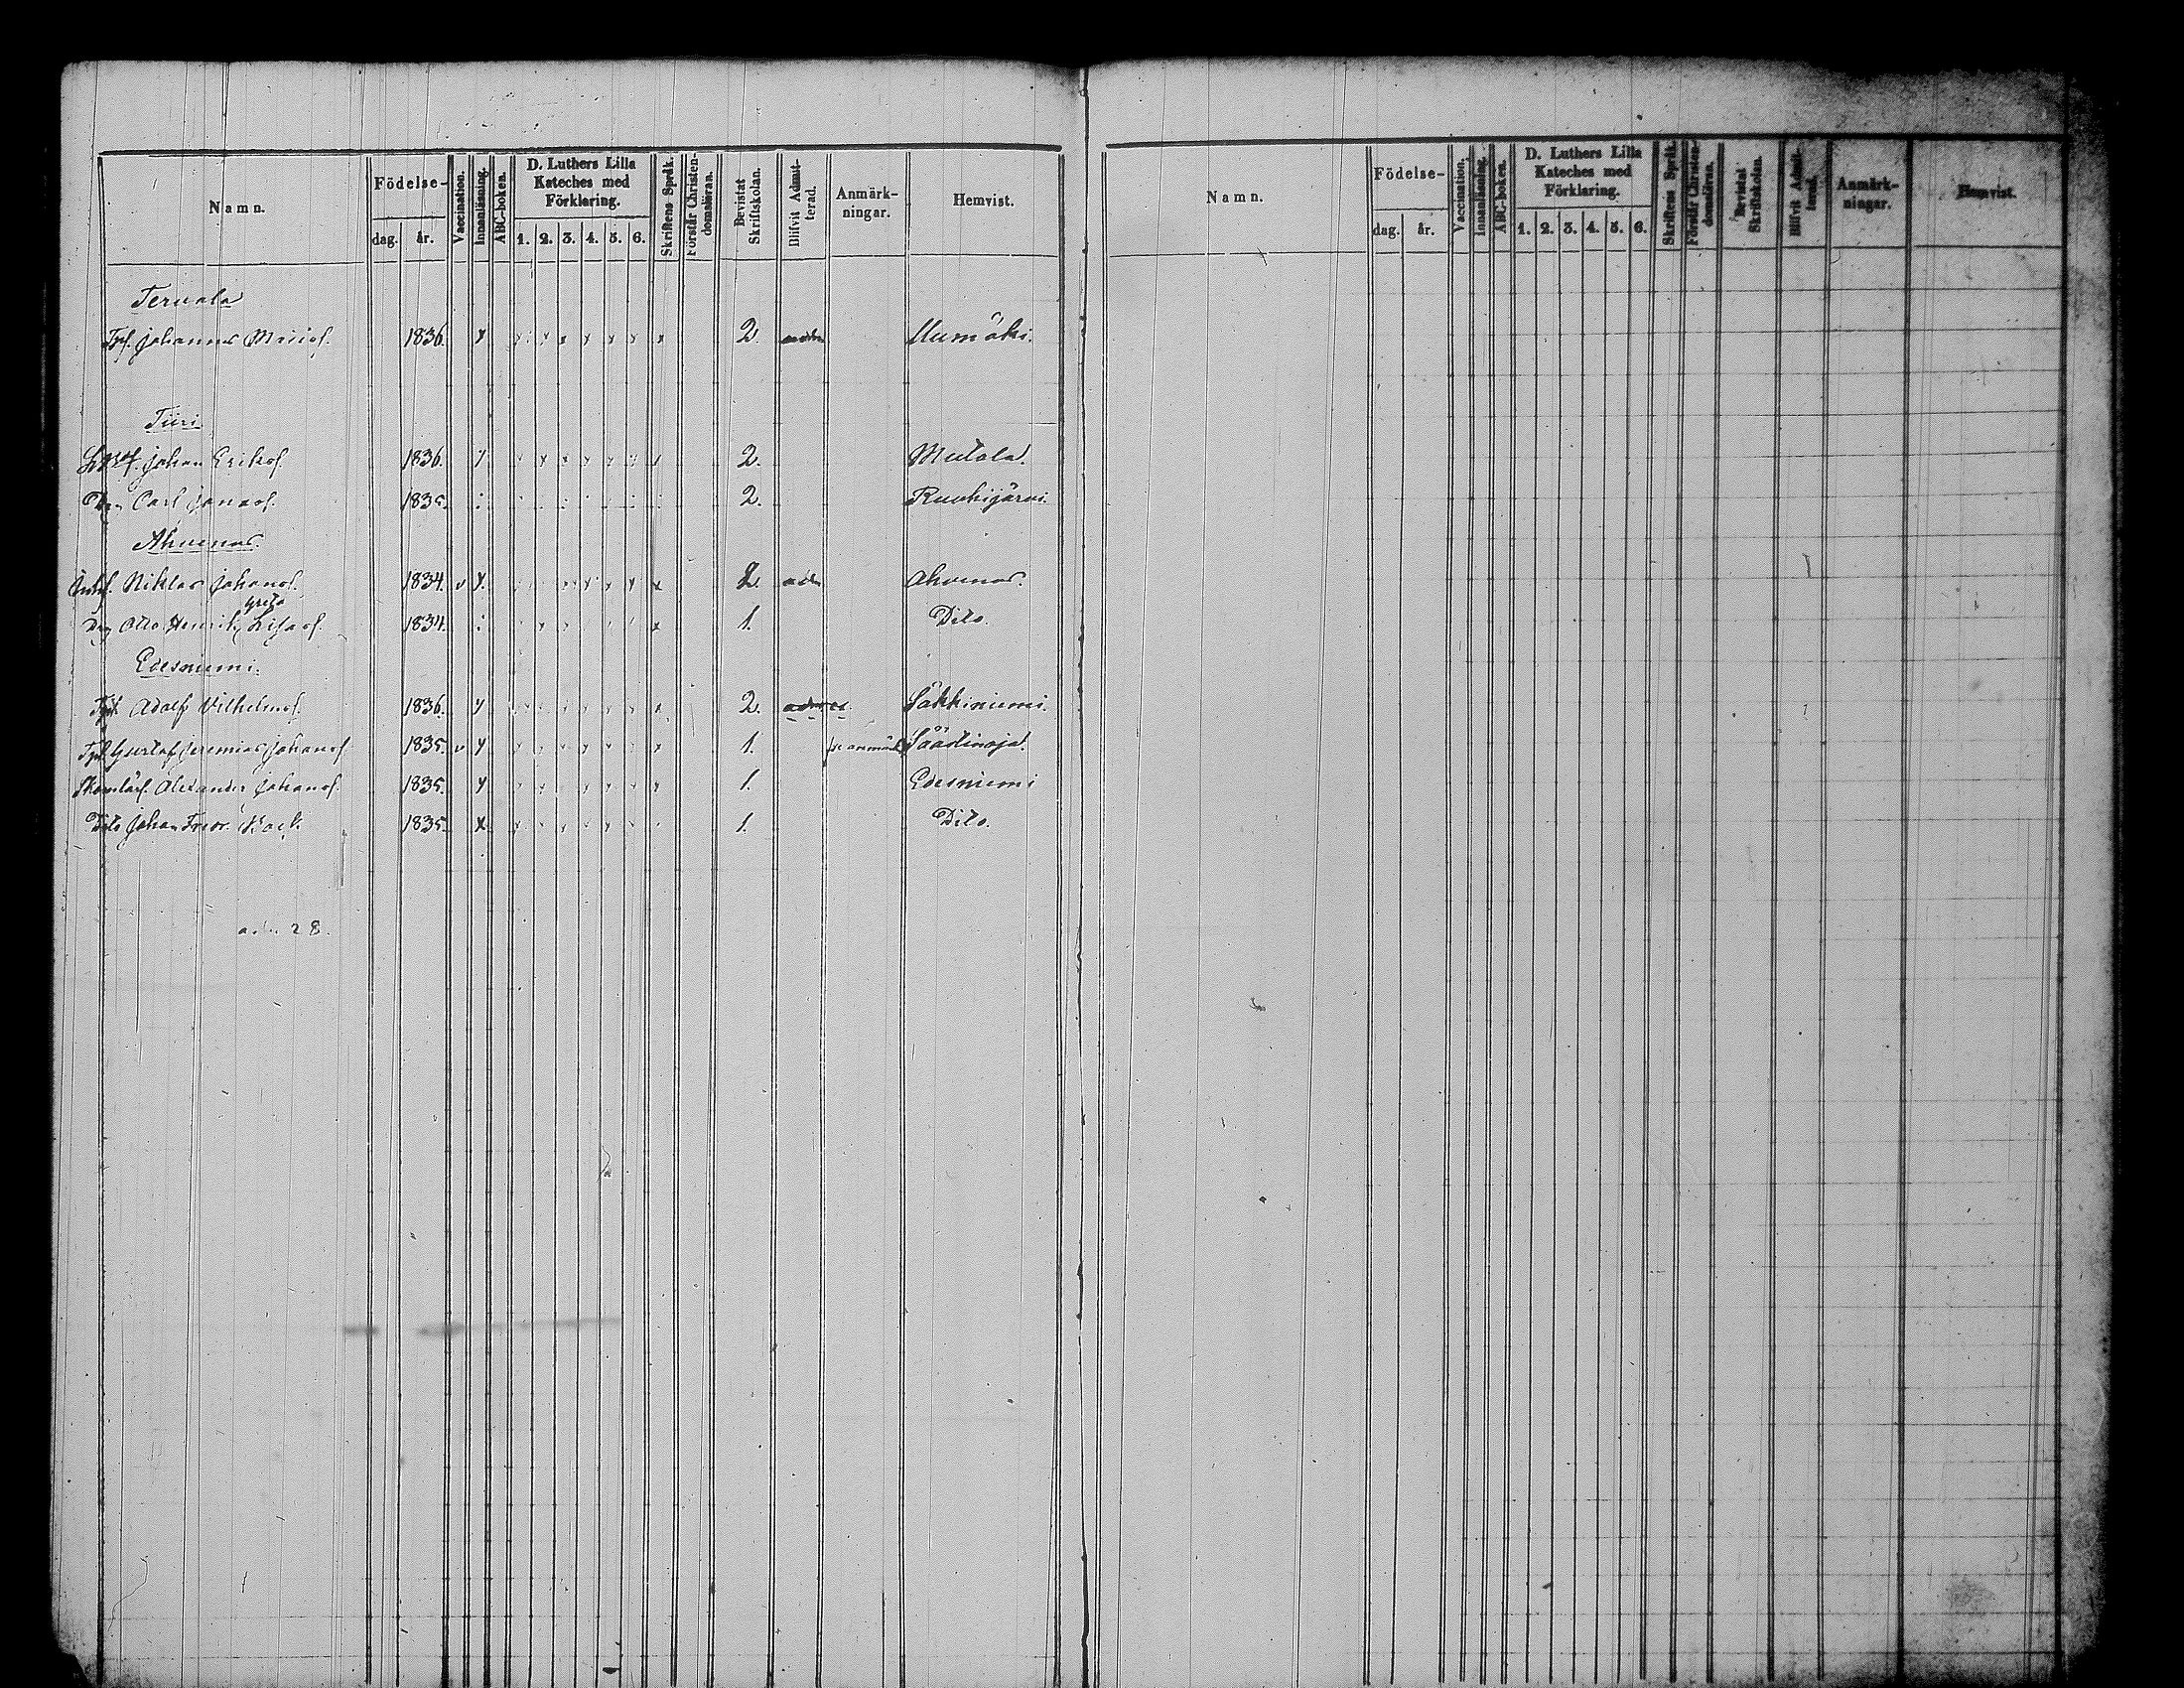 Namn. Födelse- dag. år. Vaccination. Innanläsning. ABC-boken. D. Luthers Lilla Kateches med Förklaring. 1. 2. 3. 4. 5. 6. Skriftens Språk. Förstår Christendomsläran. Bevistat Skriftskolan. Blifvit Admitterad. Anmärkningar. Hemvist.
Tervala
Tps. Johannes Mariaf. 1836. x x x x x x x x 2. adm Uumäki.
Tiiri
Johan Eriksf. 1836. 2. Mutala.
Carl Jonaef. 1835. 2. Ruuhijärvi.
Ahvenus.
Niklas Johansf. 1834. v x. 2. adm Ahvenus.
Greta
Otto Henrik Lisaef. 1834. 1. Dito.
Edesniemi.
Adolf Vilhelmsf. 1836. y 2. Säkkiniemi.
Gustaf Jeremias Johansf. 1835. v y 1. se anmärk Säästinoja.
Alexander Johansf. 1835. y 1. Edesniemi
Dito Johan Fredr. 1835. x 1. Dito.
adm 28.
Namn. Födelse- dag. år. Vaccination. Innanläsning. ABC-boken. D. Luthers Lilla Kateches med Förklaring. 1. 2. 3. 4. 5. 6. Skriftens Språk. Förstår Christendomsläran. Bevistat Skriftskolan. Blifvit Admitterad. Anmärkningar. Hemvist.